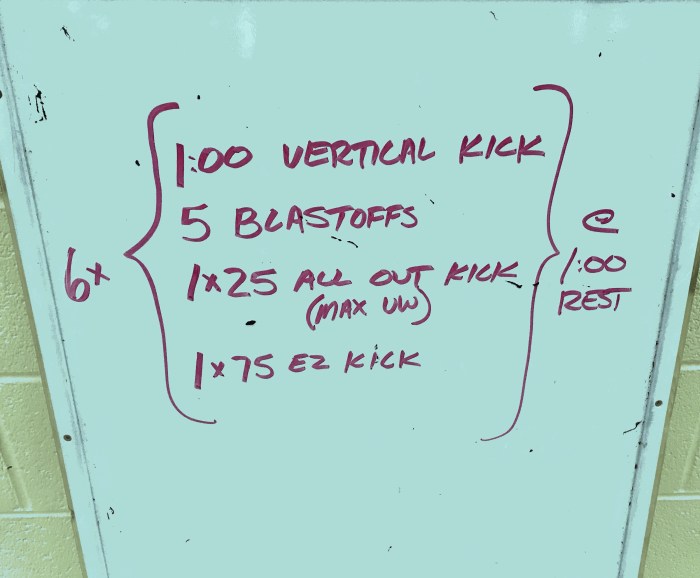 6x
1:00 VERTICAL KICK
5 BLASTOFFS
1x25 ALL OUT KICK
(MAX UW)
1x75 EZ KICK
@
1:00
REST